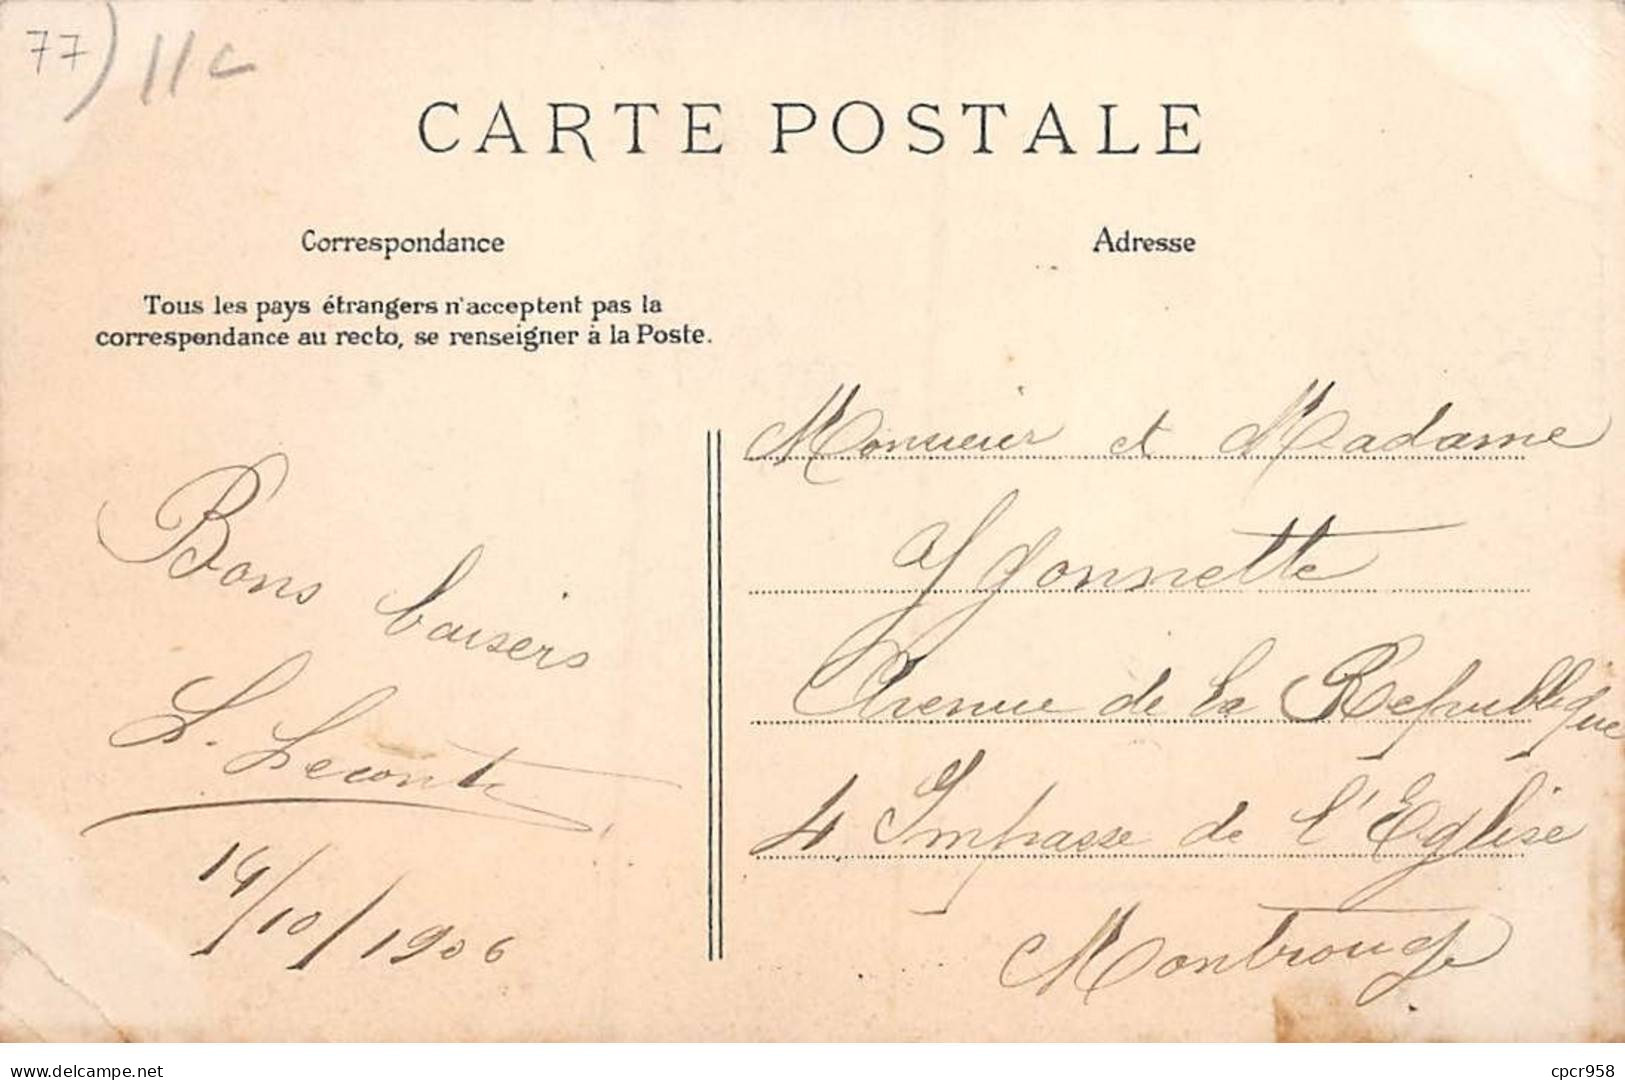 77) 11c
CARTE POSTALE
Correspondance
Adresse
Tous les pays étrangers n'acceptent pas la
correspondance au recto, se renseigner à la Poste.
Bons baisers
L. Lecont
14/10/1906
Monsieur et Madame
Jonnette
Avenue de la République
4 Impasse de l'Eglise
Montrouge
www.delcampe.net
cpcr958